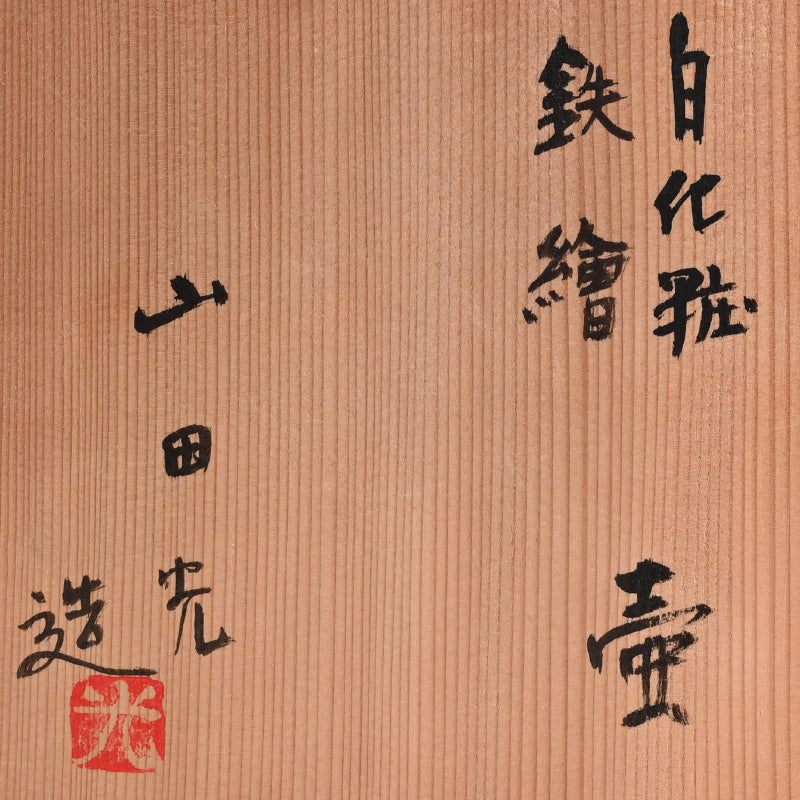 白化粧
鉄繪
壷
山田光
造
光